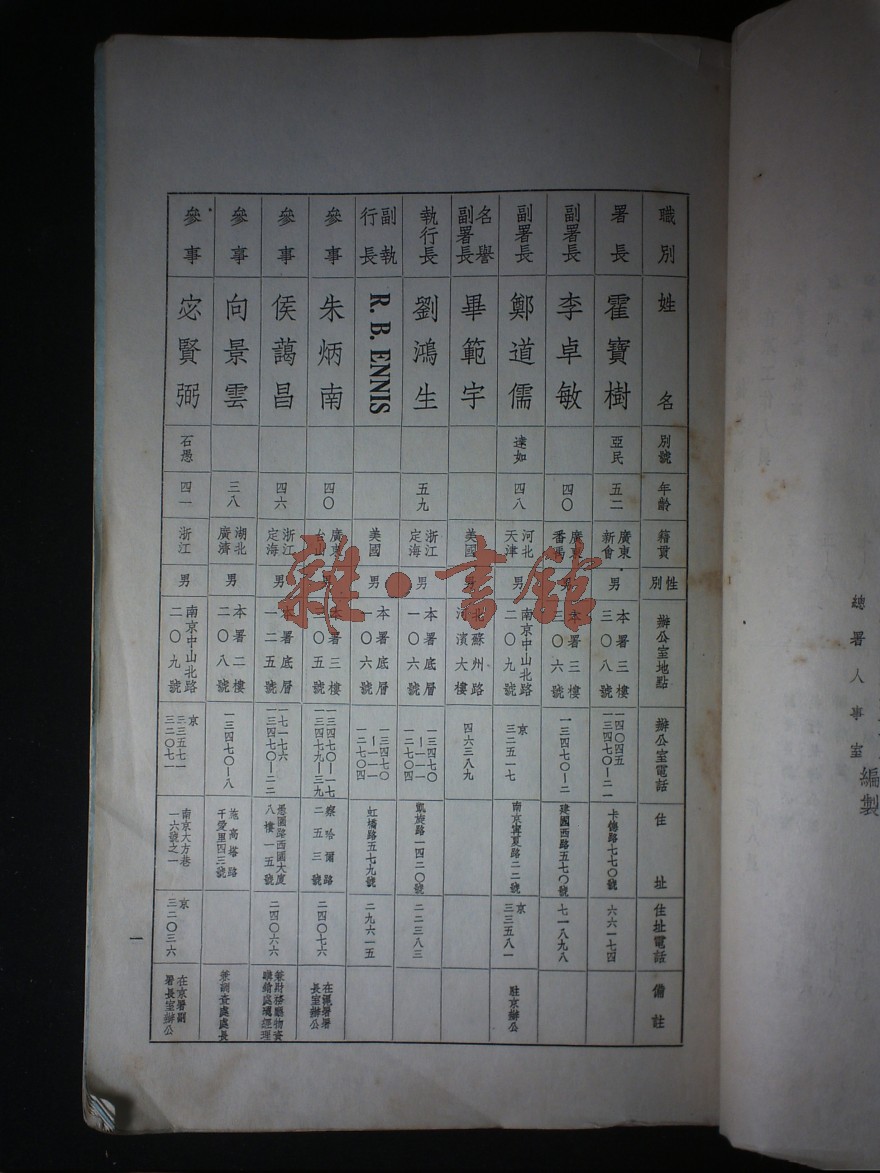 職別 姓名 別號 年齡 籍貫 性別 辦公室地點 辦公室電話 住址 住址電話 備註
署長 霍寶樹 亞民 五二 廣東新會 男 本署三樓三〇八號 一四〇四五 一三四七〇—二一 卡德路七七〇號 六六一七四
副署長 李卓敏 四〇 廣東番禺 男 本署三樓三〇六號 一三四七〇—二 建國西路五七〇號 七一八九八
副署長 鄭道儒 達如 四八 河北天津 男 南京中山北路二〇九號 京三二五一七 南京寧夏路二二號 京三三五八一 駐京辦公
名譽副署長 畢範宇 美國 男 北蘇州路河濱大樓 四六三八九
執行長 劉鴻生 五九 浙江定海 男 本署底層一〇六號 一三四七〇—一一一 一二七〇四 凱旋路一四二〇號 二二三八三
副執行長 R. B. ENNIS 美國 男 本署底層一〇六號 一三四七〇—一一一 一二七〇四 虹橋路五七九號 二九六一五
參事 朱炳南 四〇 廣東台山 男 本署三樓 一三四七〇—一七 一三四七九—三九 察哈爾路二五三號 二四〇七六 在滬署署長室辦公
參事 侯藹昌 四六 浙江定海 男 本署底層一二五號 一七一七六 一三四七〇—二二 愚園路西園大廈八樓一五號 二四〇六六 兼財務廳物資
參事 向景雲 三八 湖北廣濟 男 本署二樓二〇八號 一三四七〇—八 施高塔路千愛里四三號 兼調查處處長
參事 宓賢弼 石愚 四一 浙江 男 南京中山北路二〇九號 京三三五七一 三二〇七一 南京大方巷一六號之一 京三二〇三六 在京署副署長室辦公
一
總署人事室編製
雜·書館